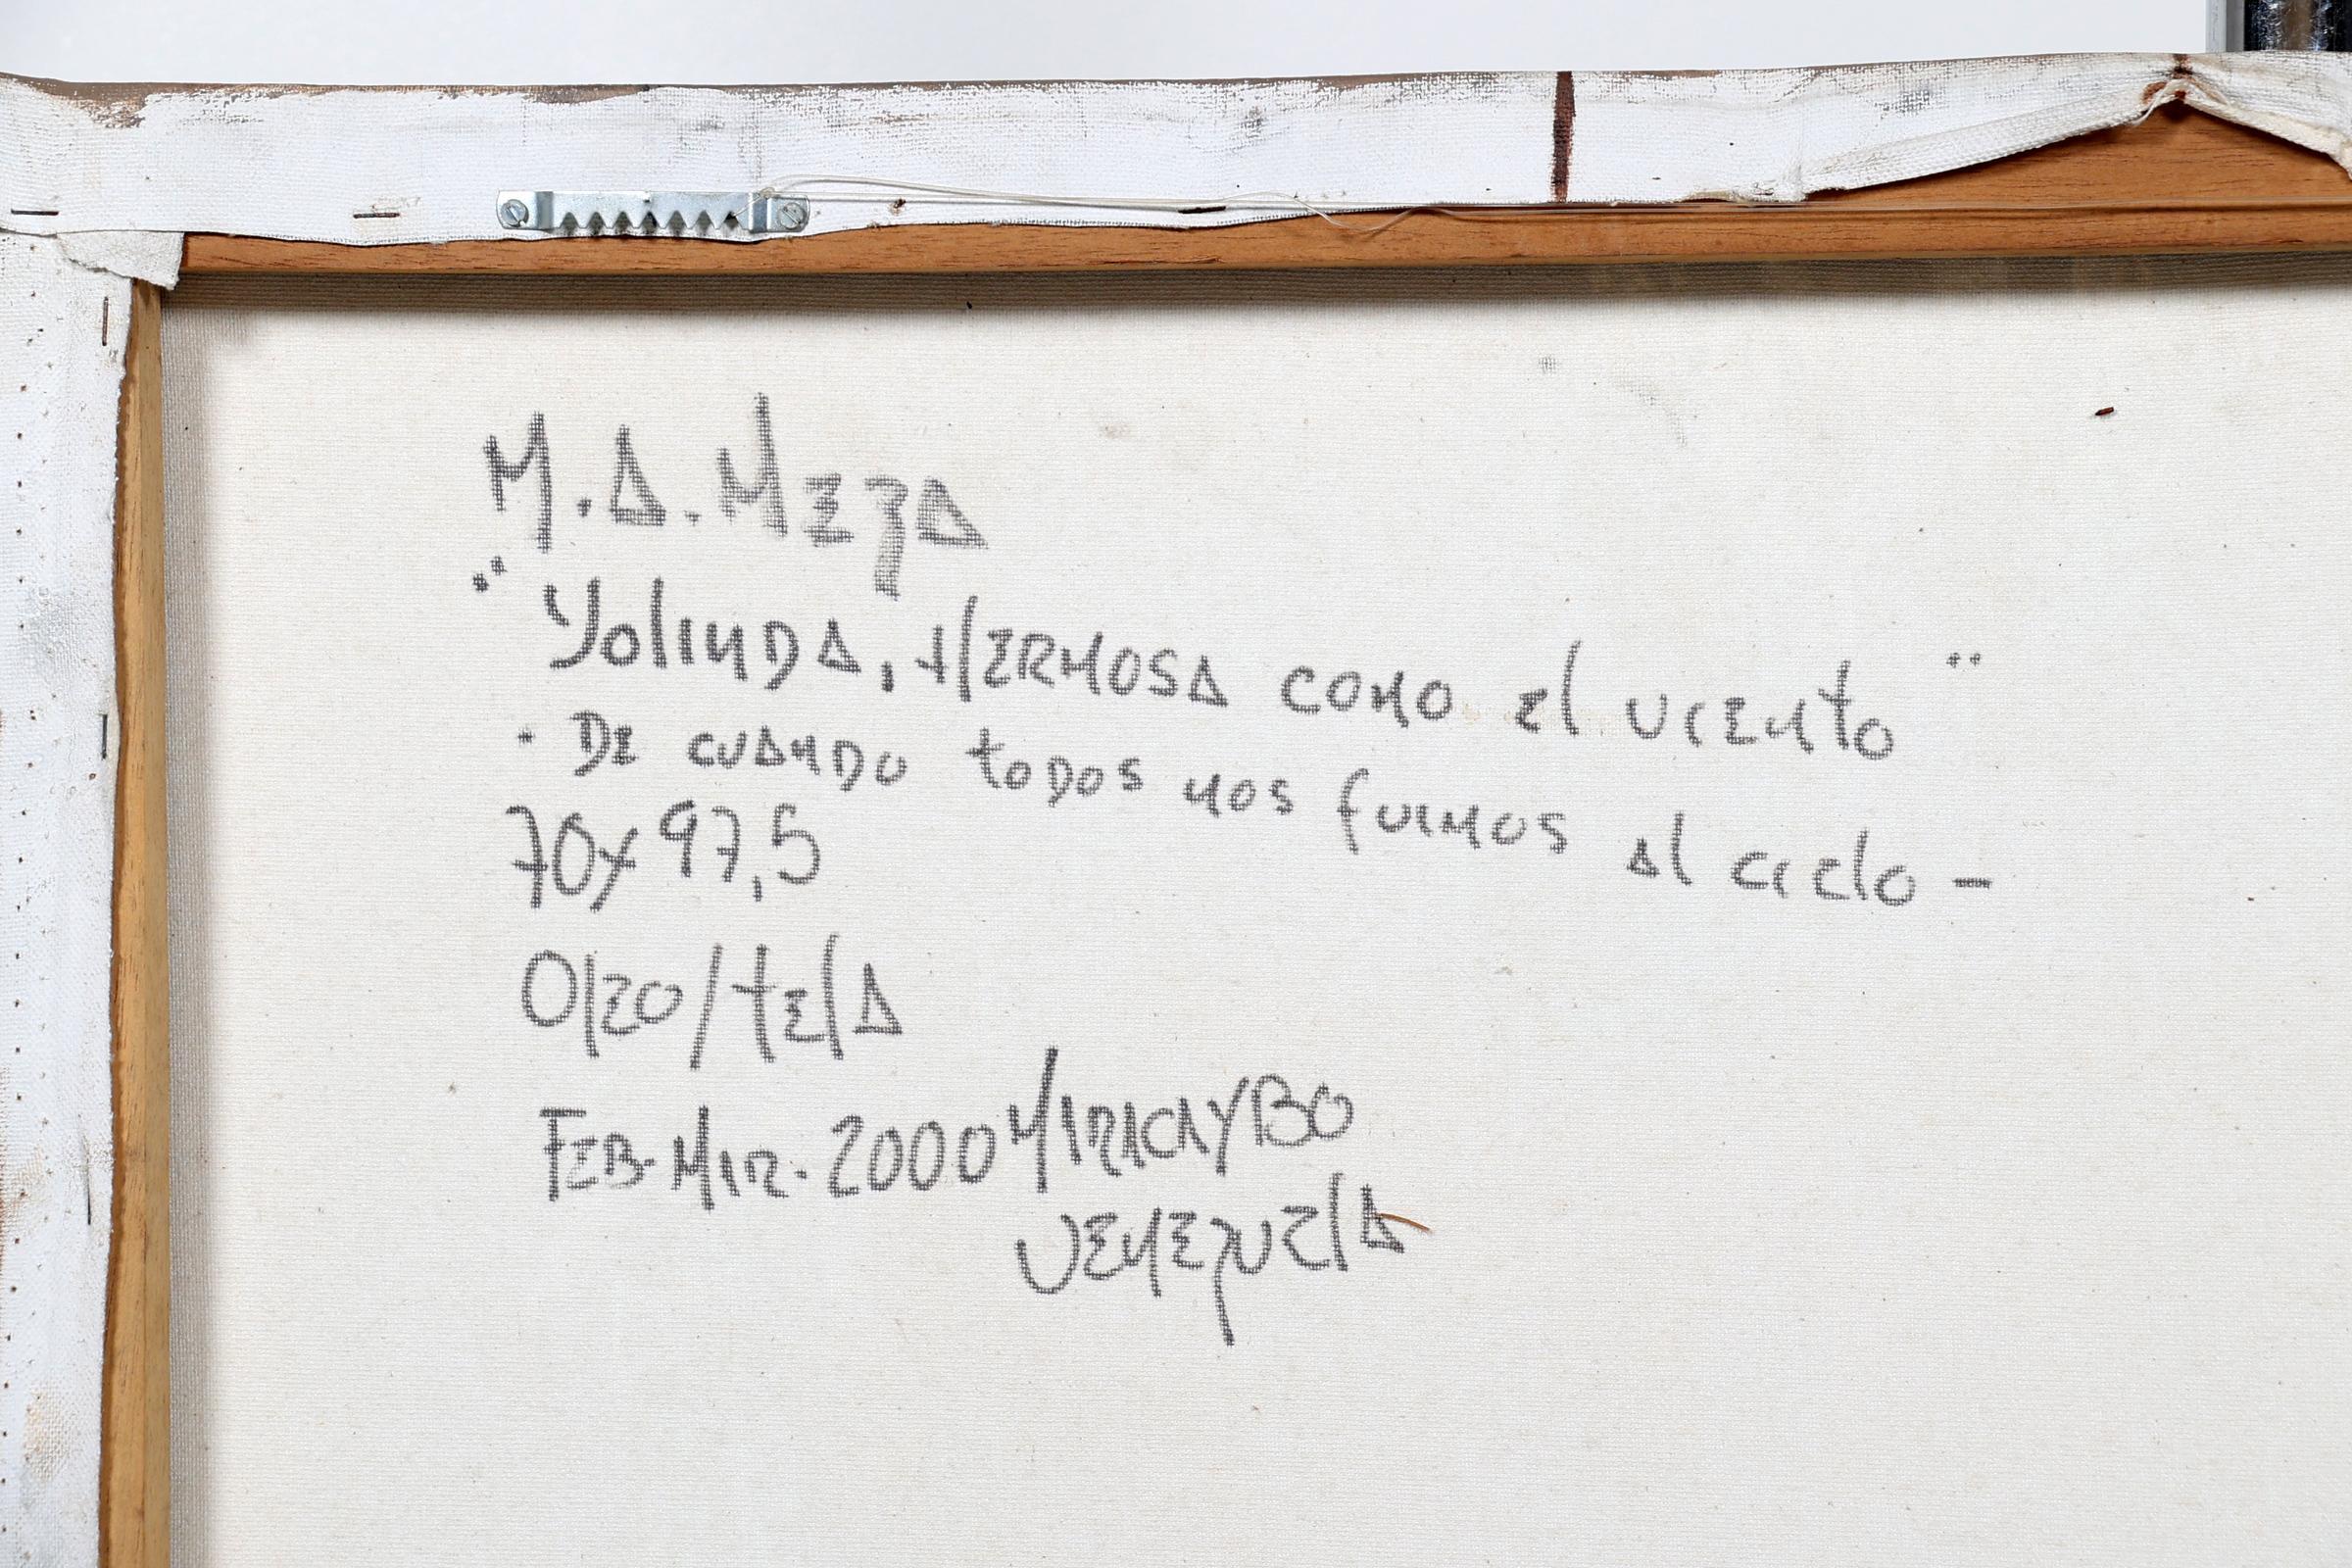 M.A.MEZA
"YOlINDA, HERMOSA COMO El VIENTO"
· DE CUANDO TODOS NOS FUIMOS Al CIElO -
70x97,5
OlEO/TElA
FEB.MAR.2000 MARACAYBO
VENEZUElA